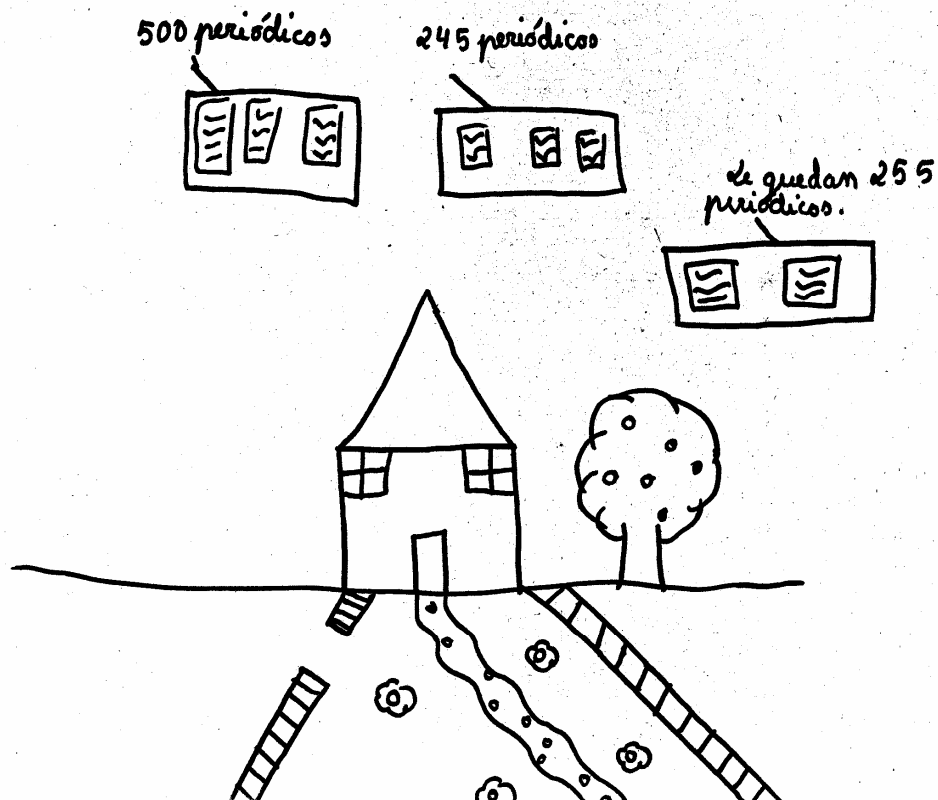 500 periódicos
245 periódicos
Le quedan 255
periódicos.